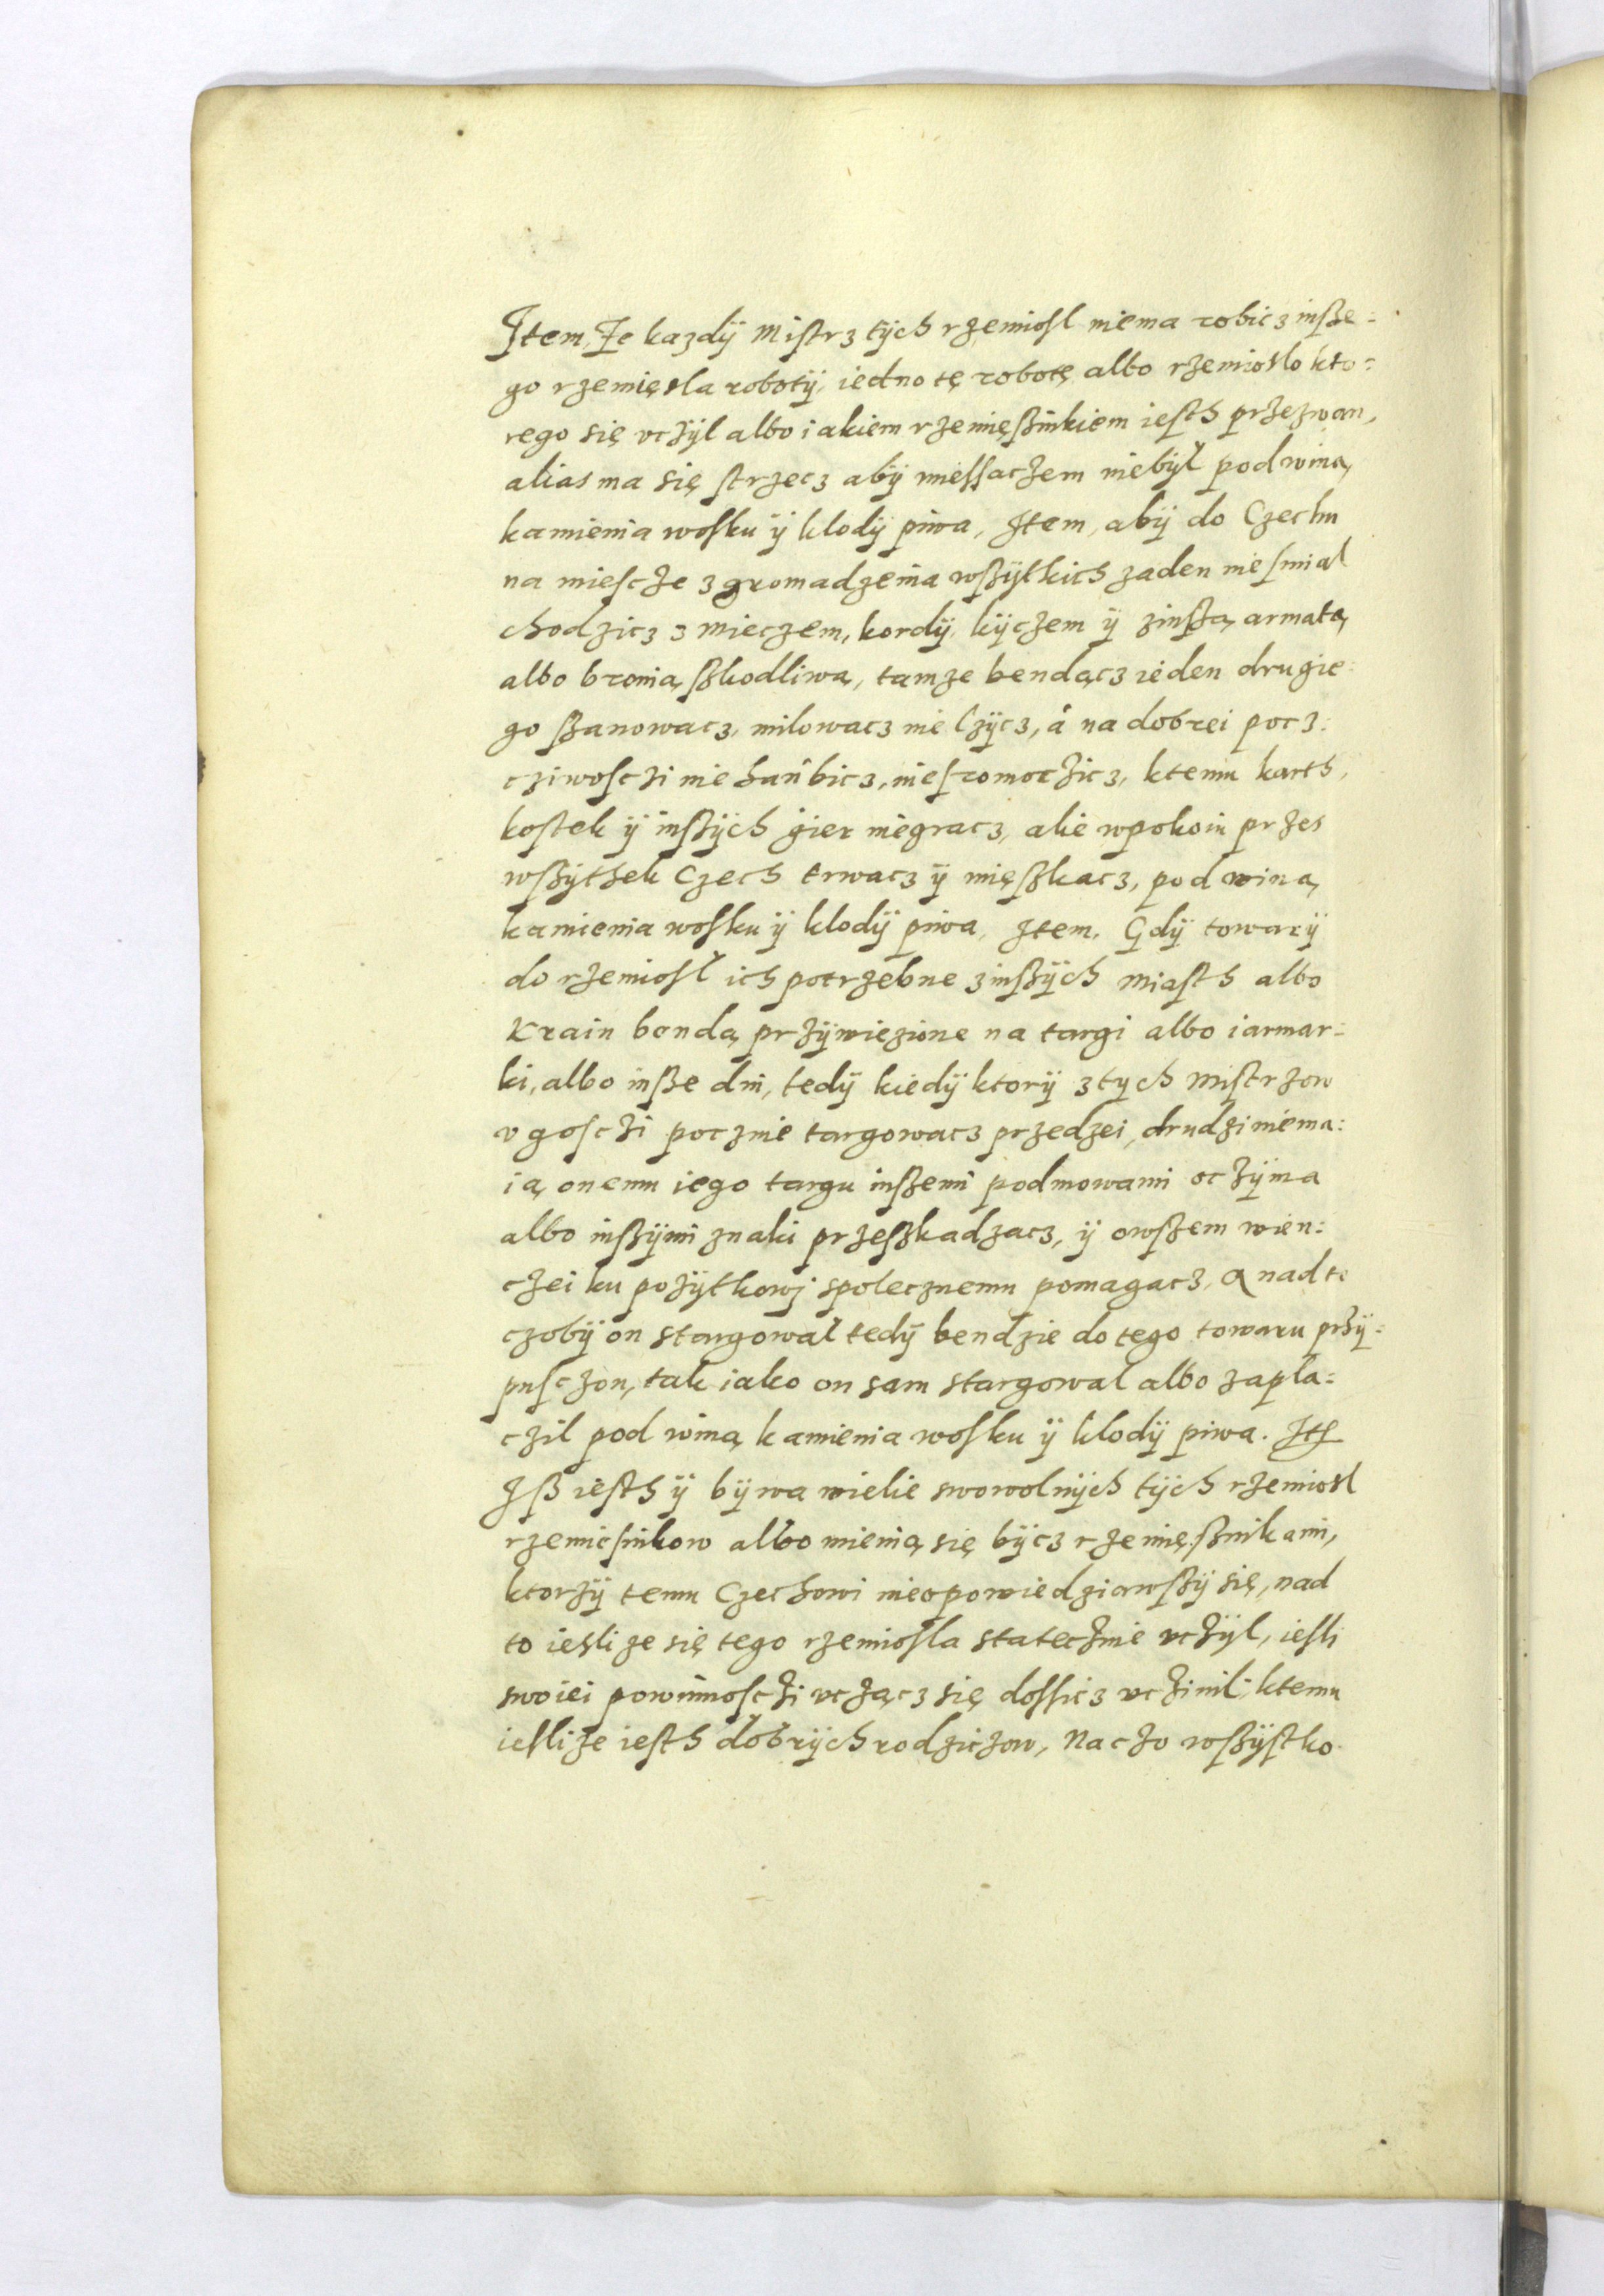 Item, Że kazdÿ Mistrz tÿch rzemiosl niema robicz insze=
go rzemięsla robotÿ, iedno tę robotę albo rzemioslo kto=
rego się vczÿl albo iakiem rzemięsznikiem iesth przezwan,
alias ma się strzecz abÿ miessaczem niebÿł pod winą,
kamienia wosku ÿ klodÿ piwa, Item, abÿ do Czechu
na miescze zgromadzenia wszÿtkich zaden niesmial
chodzicz z mieczem, kordÿ, kÿczem ÿ zinszą armatą
albo bronią szkodliwą, tamze bendącz ieden drugie=
go szanowacz, milowacz nie lzÿcz, á na dobrei pocz=
cziwosczi nie hańbicz, niesromoczicz, ktemu karth,
kostek ÿ inszÿch gier niegracz, alie wpokoiu przes
wszÿthek Czech trwacz ÿ mięszkacz, pod winą
kamienia wosku ÿ klodÿ piwa, Item, Gdÿ towarÿ
do rzemiosł ich potrzebne zinszÿch Miasth albo
Krain bendą przÿwiezione na targi albo iarmar=
ki, albo insze dni, tedÿ kiedÿ ktorÿ ztych mistrzow
v gosczi pocznie targowacz przedzei, drudzi niema=
ią onemu iego targu inszemi podmowami oczÿma
albo inszÿmi znaki przeszkadzacz, ÿ owszem wien=
czei ku pozÿtkowj spolecznemu pomagacz, A nad to
czobÿ on stargował tedÿ bendzie do tego towaru przÿ=
pusczon, tak iako on sam stargowal albo zapla=
czil pod winą kamienia wosku ÿ klodÿ piwa.
Isz iesth ÿ bÿwa wielie swowolnÿch tÿch rzemiosl
rzemiesnikow albo mienią się bÿcz rzemięsznikami,
ktorzÿ temu Czechowi nieopowiedziawszÿ się, nad
to iesli ze się tego rzemiosla statecznie vczÿl, iesli
swoiei powinnosczi vczącz się dossicz vczinil, ktemu
iesli ze iesth dobrÿch rodziczow, Na czo wszÿstko